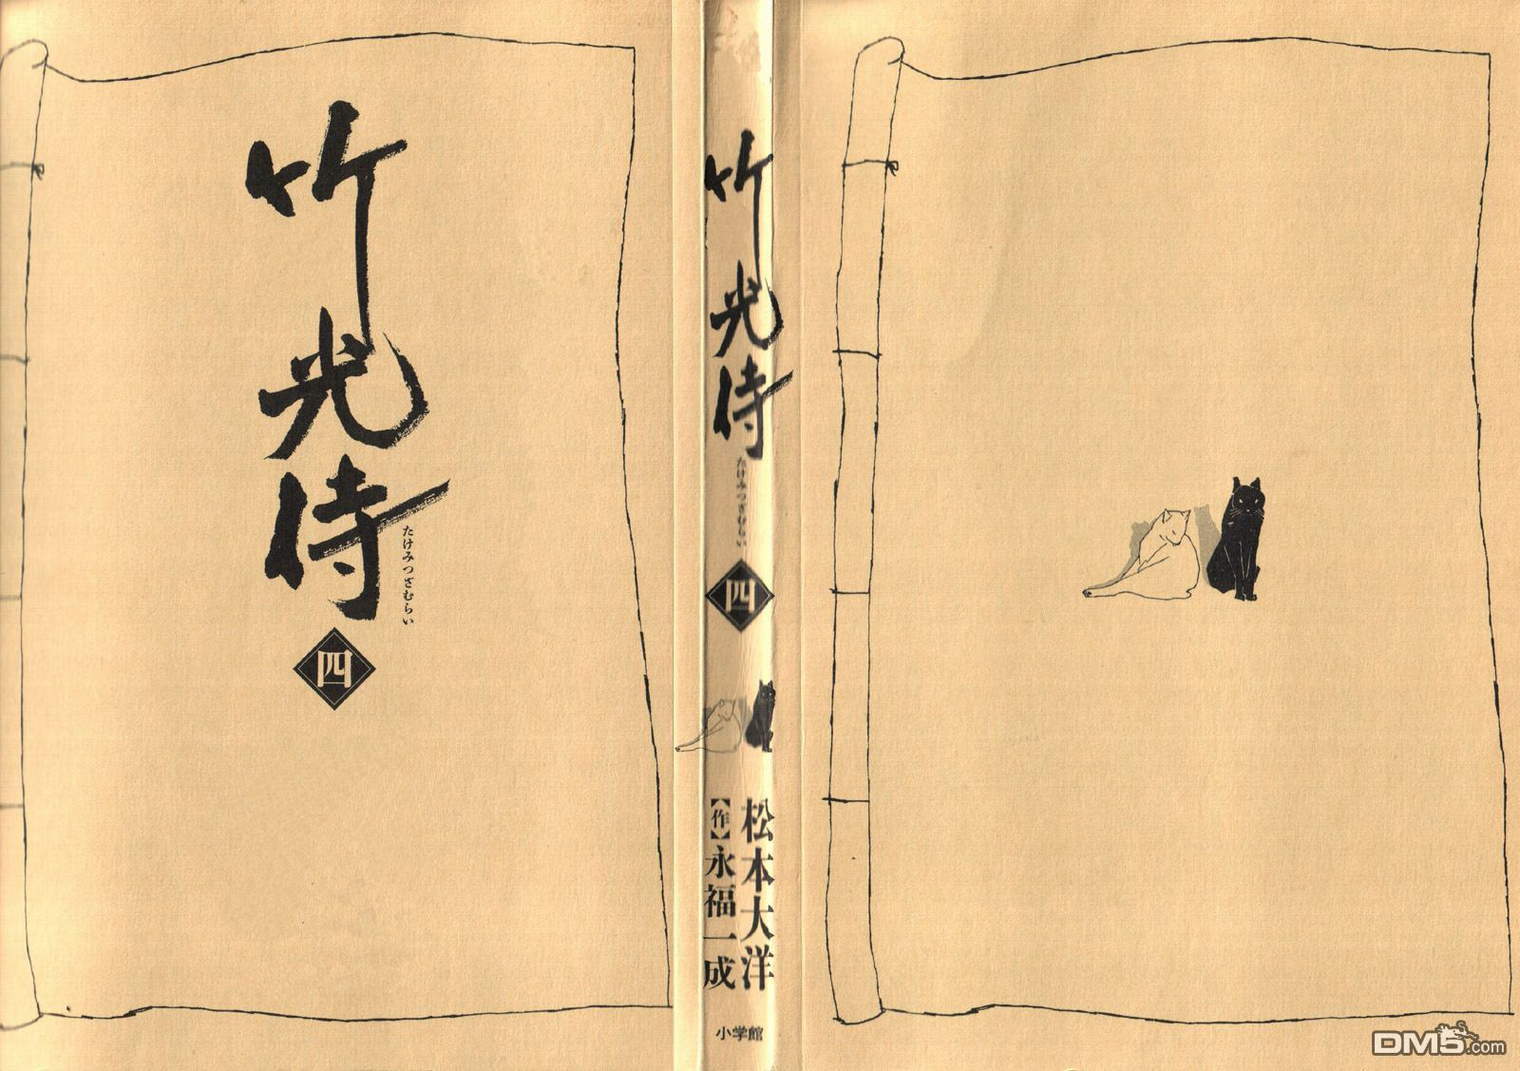 竹光侍
たけみつざむらい
四
竹光侍
たけみつざむらい
四
松本大洋
【作】永福一成
小学館
DM5.com